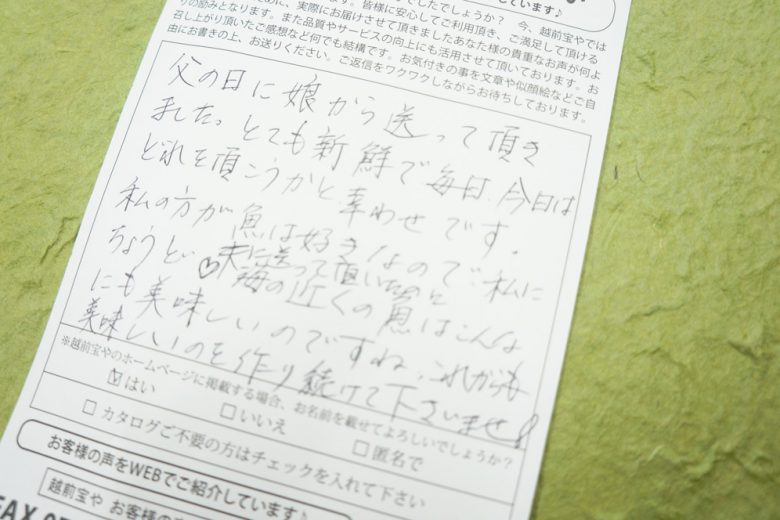 でしたでしょうか？　今、越前宝やでは
しています♪
に、実際にお届けさせて頂きましたあなた様の貴重なお声が何よ
りの励みとなります。皆様に安心してご利用頂き、ご満足して頂ける
召し上がり頂いたご感想など何でも結構です。お気付きの事を文章や似顔絵などご自
由にお書きの上、お送りください。ご返信をワクワクしながらお待ちしております。
父の日に娘から送って頂き
ました。とても新鮮で毎日、今日は
どれを頂こうかと幸わせです。
私の方が魚は好きなので、私に
ちょうど、♡夫に送って頂いたのに
海の近くの魚はこんな
にも美味しいのですね、これからも
美味しいのを作り続けて下さいませ!
※越前宝やのホームページに掲載する場合、お名前を載せてよろしいでしょうか？
☑はい
□いいえ
□匿名で
□カタログご不要の方はチェックを入れて下さい
お客様の声をWEBでご紹介しています♪
越前宝や お客様の
FAX 07